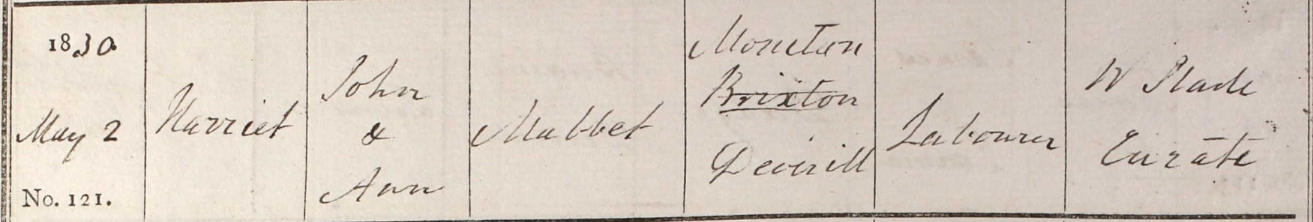 1830
May 2
No. 121.
Harriet
John
&
Ann
Mabbet
Monctan
Brixton
Deverill
Labourer
W Slade
Curate